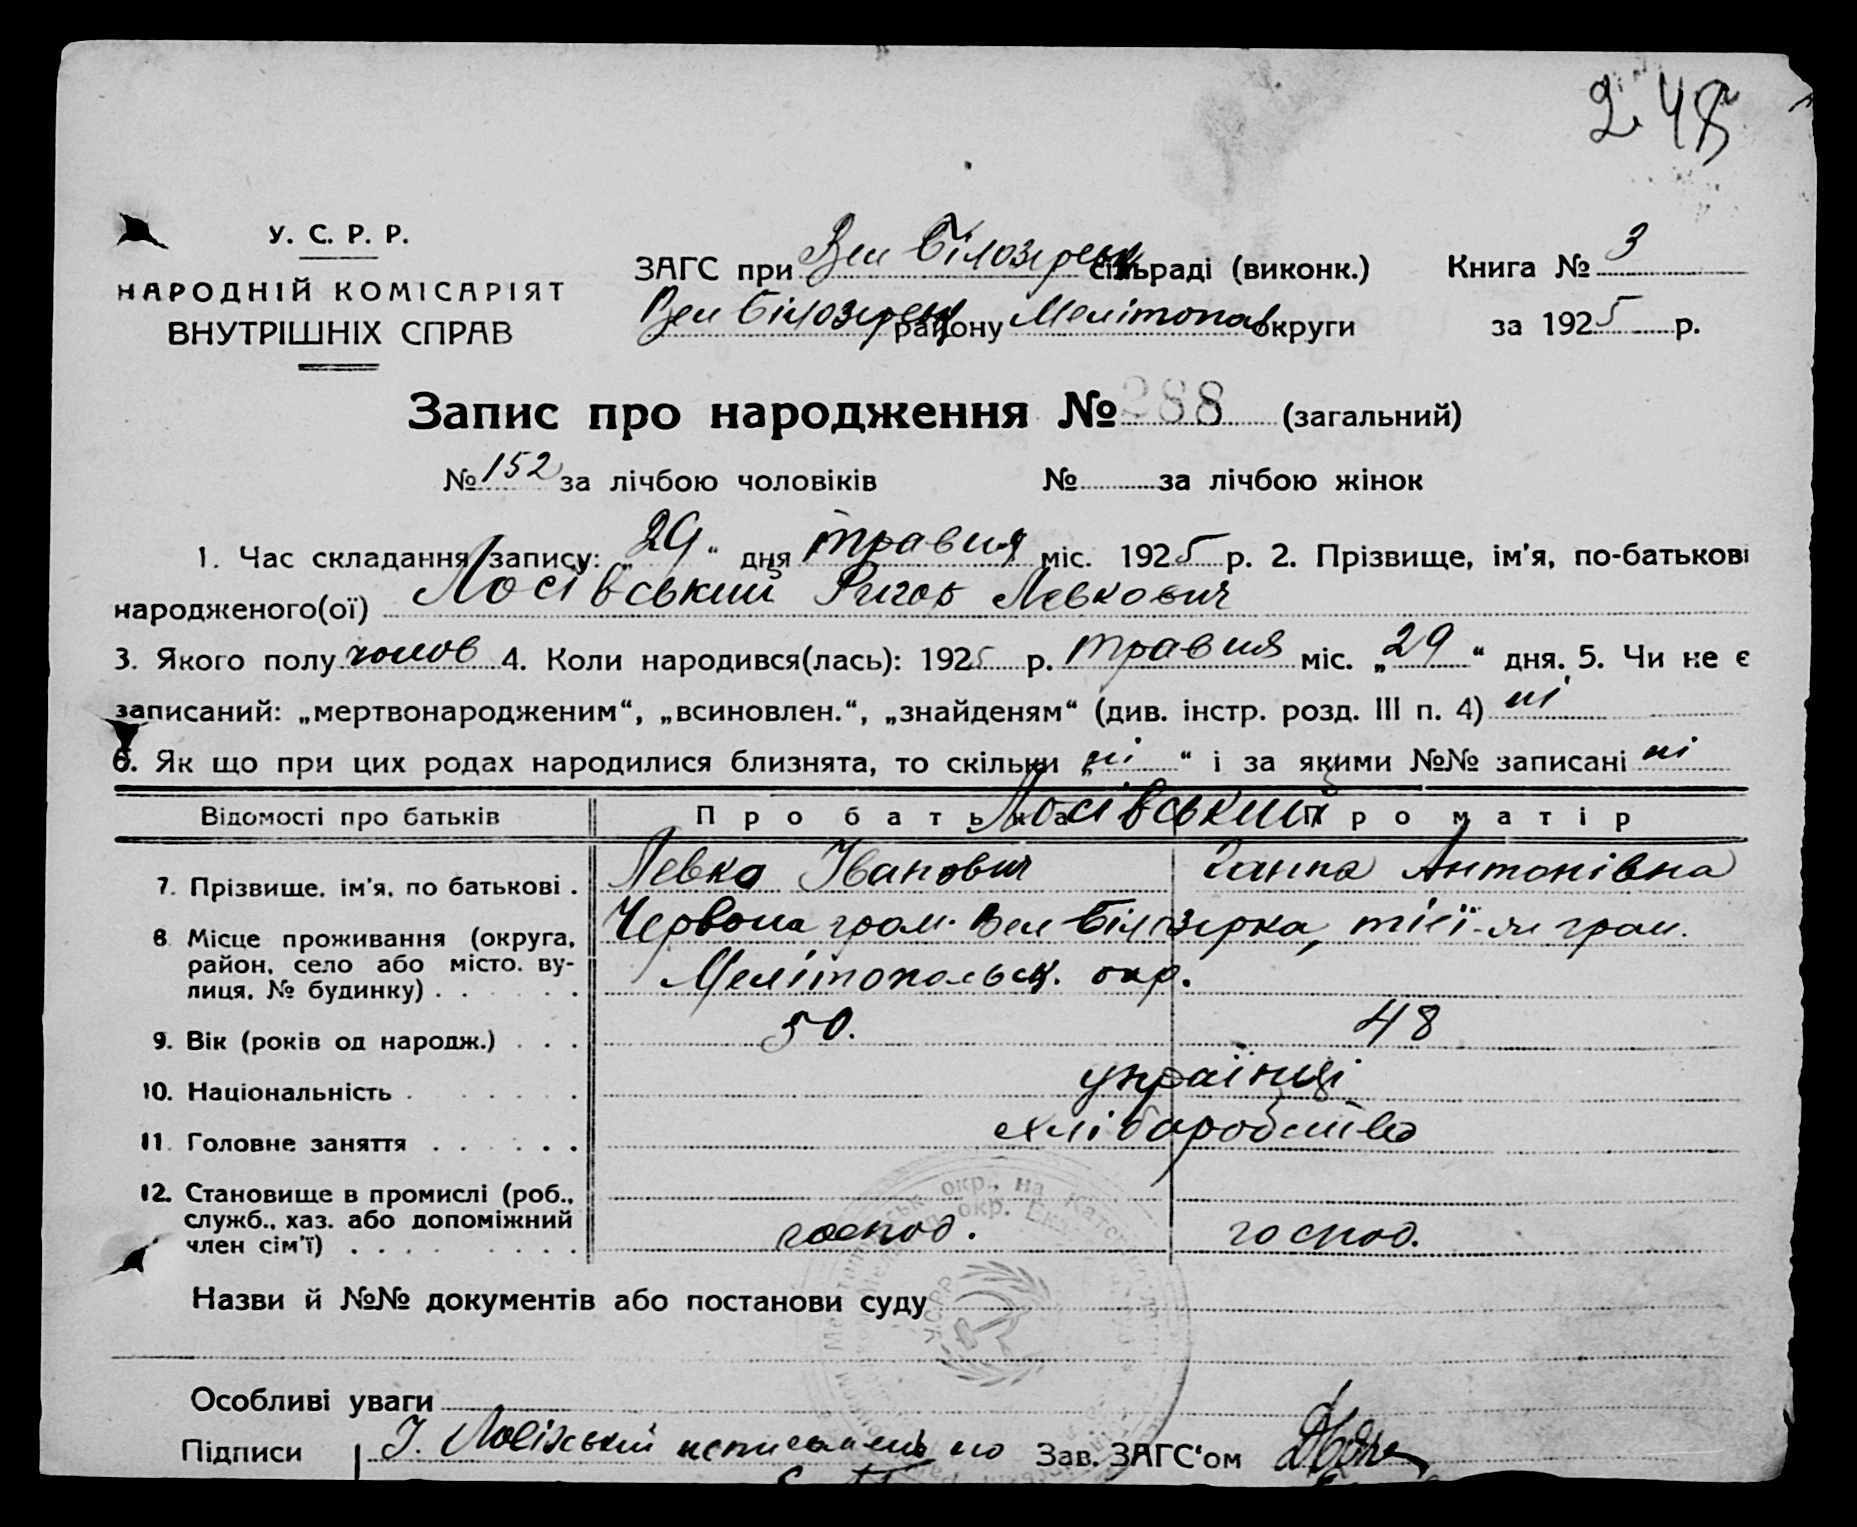 248
У. С. Р. Р.
НАРОДНІЙ КОМІСАРІЯТ
ВНУТРІШНІХ СПРАВ
ЗАГС при Вел Білозерськ сільраді (виконк.) Книга № 3
Вел Білозерськ району Мелітопол округи за 1925 р.
Запис про народження № 288 (загальний)
№ 152 за лічбою чоловіків № за лічбою жінок
1. Час складання запису: „29“ дня травня міс. 1925 р. 2. Прізвище, ім'я, по-батькові
народженого(ої) Лосівський Левкович
3. Якого полу чолов 4. Коли народився(лась): 1925 р. травня міс. „29“ дня. 5. Чи не є
записаний: „мертвонародженим“, „всиновлен.“, „знайденям“ (див. інстр. розд. III п. 4) ні
6. Як що при цих родах народилися близнята, то скільки „ні“ і за якими №№ записані ні
Відомості про батьків Про батька Про матір
Лосівський
7. Прізвище, ім'я, по батькові . Левко Іванович Ганна Антонівна
8. Місце проживання (округа, район, село або місто, вулиця, № будинку) . . . Червона гром. Вел Білозерка, тієї-ж гром.
Мелітопольськ. окр.
9. Вік (років од народж.) . . . 50. 48
10. Національність . . . українці
11. Головне заняття . . . хліборобство
12. Становище в промислі (роб., служб., хаз. або допоміжний член сім'ї) . . . господ. господ.
Назви й №№ документів або постанови суду
УСРР
Особливі уваги
Підписи Зав. ЗАГС'ом